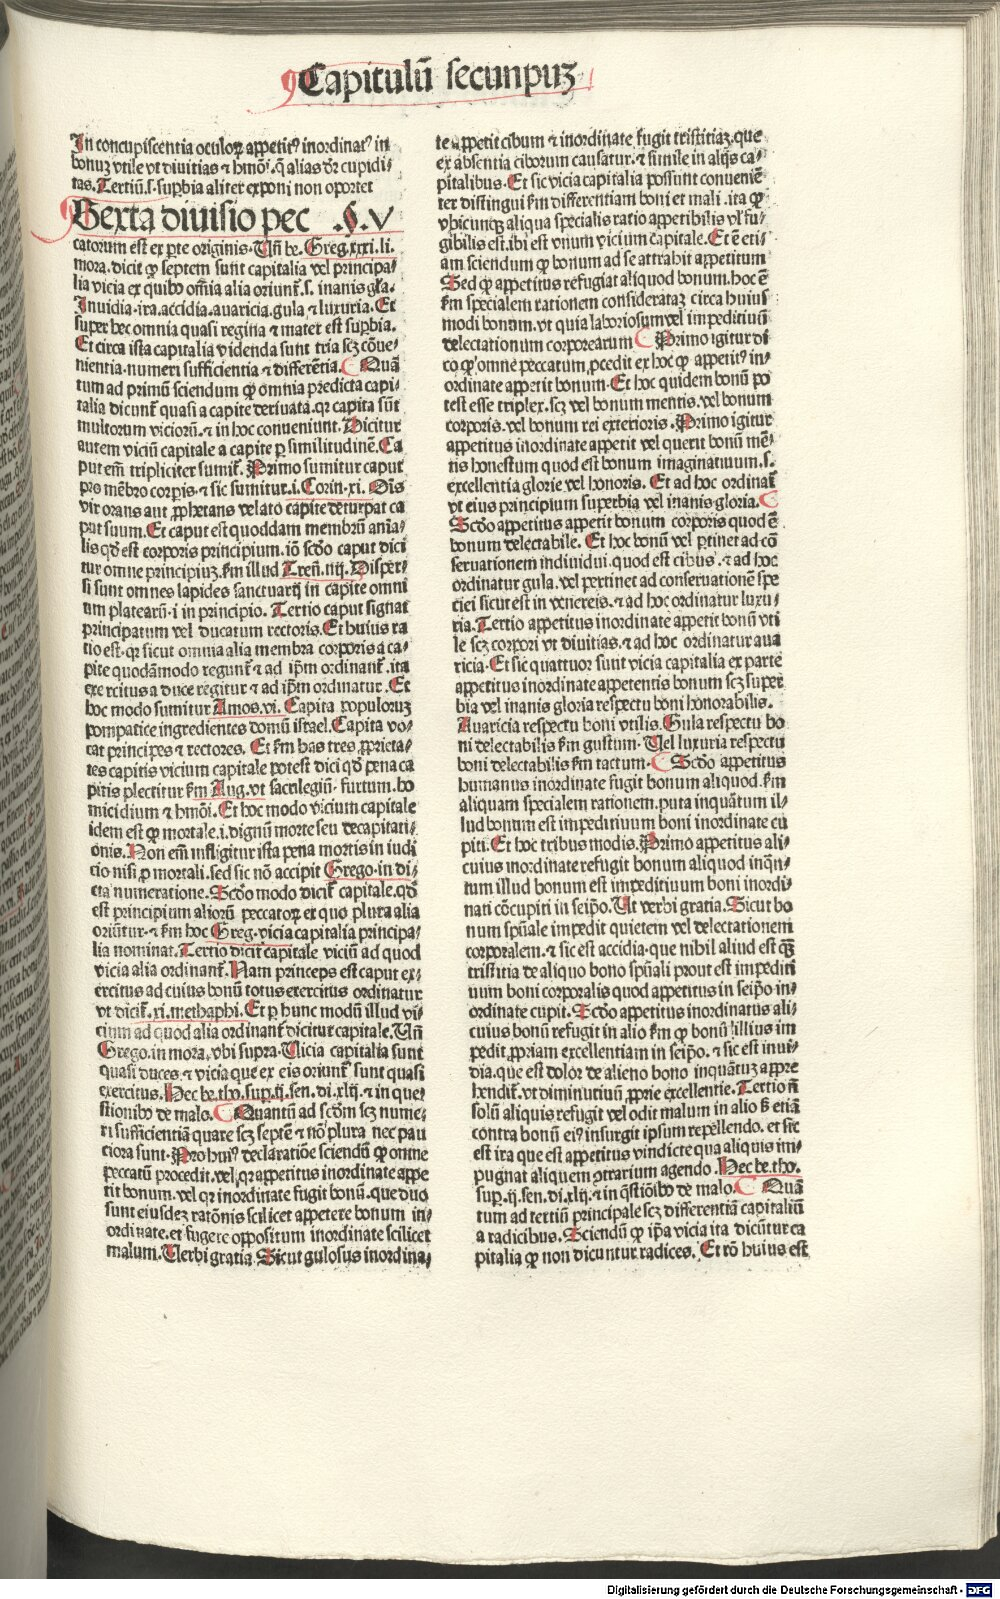 Capitulū secunpuꝫ
In concupiscentia oculoꝝ appetitꝰ inordinatꝰ in
bonuꝫ vtile vt diuitias ⁊ hmōi. q̄ alias dr̄ cupidi⸗
tas. Tertiū.s. suꝑbia aliter exponi non oportet
Sexta diuisio pec .§.V
catorum est ex ꝑte originis. Un̄ be. Greg. xxxi. li.
mora. dicit ꝙ septem sunt capitalia vel principa⸗
lia vicia ex quibꝰ oīa alia oriunt̄.s. inanis gl̄a.
Inuidia. ira. accidia. auaricia. gula ⁊ luxuria. Et
super hec omnia quasi regina ⁊ mater est suꝑbia.
Et circa ista capitalia videnda sunt tria scꝫ cōue⸗
nientia. numeri sufficientia ⁊ differētia. Quā
tum ad primū sciendum ꝙ omnia predicta capi⸗
talia dicunt̄ quasi a capite deriuata. qꝛ capita sūt
multorum vicioꝝ. ⁊ in hoc conueniunt. Dicitur
autem viciū capitale a capite ꝑ similitudinē. Ca
put em̄ tripliciter sumit̄. Primo sumitur caput
pro mēbro corꝑis. ⁊ sic sumitur. i. Corin. xi. Oīs
vir orans aut ꝓphetans velato capite deturpat ca
put suum. Et caput est quoddam membrū anīa⸗
lis qd̄ est corporis principium. iō scdo caput dici
tur omne principiuꝫ. km̄ illud Tren̄. iiij. Disper⸗
si sunt omnes lapides sanctuarij in capite omni
um platearū. i in principio. Tertio caput signat
principatum vel ducatum rectoris. Et huius ra
tio est. qꝛ sicut omnia alia membra corporis a ca⸗
pite quodāmodo regunt̄ ⁊ ad ip̄m ordinant̄. ita
exercitus a duce regitur ⁊ ad ip̄m ordinatur. Et
hoc modo sumitur Amos. vi. Capita populoruꝫ
pompatice ingredientes domū israel. Capita vo⸗
cat principes ⁊ rectores. Et km̄ has tres ꝓprieta⸗
tes capitis vicium capitale potest dici qd̄ pena ca
pitis plectitur km̄ Aug. vt sacrilegiū. furtum. ho
micidium ⁊ hmōi. Et hoc modo vicium capitale
idem est ꝙ mortale. i. dignū morte seu decapitati⸗
onis. Non em̄ infligitur ista pena mortis in iudi
cio nisi ꝓ mortali. sed sic nō accipit Grego. in di⸗
cta numeratione. Scdo modo dicit̄ capitale. qd̄
est principium alioꝝ peccatoꝝ ex quo plura alia
oriūtur. ⁊ km̄ hoc Greg. vicia capitalia principa⸗
lia nominat. Tertio dicit̄ capitale viciū ad quod
vicia alia ordinant̄. Nam princeps est caput ex⸗
ercitus ad cuius bonū totus exercitus ordinatur
vt dicit̄. xi. methaphi. Et ꝑ hunc modū illud vi⸗
cium ad quod alia ordinant̄ dicitur capitale. Un̄
Grego. in mora. vbi supra. Uicia capitalia sunt
quasi duces. ⁊ vicia que ex eis oriunt̄ sunt quasi
exercitus. Hec be. tho. sup. ij. sen. di. xlij. ⁊ in que⸗
stionibꝰ de malo. Quantū ad scdm̄ scꝫ nume⸗
ri sufficientiā quare scꝫ septē ⁊ nō plura nec pau
ciora sunt. Pro huiꝰ declaratiōe sciendū ꝙ omne
peccatū procedit. vel qꝛ appetitus inordinate appe
tit bonum. vel qꝛ inordinate fugit bonū. que duo
sunt eiusdeꝫ ratōnis scilicet appetere bonum in⸗
ordinate. et fugere oppositum inordinate scilicet
malum. Uerbi gratia. Sicut gulosus inordina⸗
te appetit cibum ⁊ inordinate fugit tristitiaꝫ. que
ex absentia ciborum causatur. ⁊ simile in alijs ca⸗
pitalibus. Et sic vicia capitalia possunt conueniē⸗
ter distingui km̄ differentiam boni et mali. ita ꝙ
vbicunqꝫ aliqua specialis ratio appetibilis vl̓ fu⸗
gibilis est. ibi est vnum vicium capitale. Et ē eti⸗
am sciendum ꝙ bonum ad se attrahit appetitum
Sed ꝙ appetitus refugiat aliquod bonum. hoc ē
km̄ specialem rationem consideratuꝫ circa huius
modi bonum. vt quia laboriosum vel impeditiuū
delectationum corporearum Primo igitur di
co ꝙ omne peccatum ꝓcedit ex hoc ꝙ appetitꝰ in⸗
ordinate appetit bonum. Et hoc quidem bonū po
test esse triplex. scꝫ vel bonum mentis. vel bonum
corporis. vel bonum rei exterioris. Primo igitur
appetitus inordinate appetit vel querit bonū mē⸗
tis honestum quod est bonum imaginatiuum. s.
excellentia glorie vel honoris. Et ad hoc ordinat̄
vt eius principium superbia vel inanis gloria.
Scdo appetitus appetit bonum corporis quod ē
bonum delectabile. Et hoc bonū vel ꝑtinet ad cō
seruationem indiuidui. quod est cibus. ⁊ ad hoc
ordinatur gula. vel pertinet ad conseruationē spe
ciei sicut est in venereis. ⁊ ad hoc ordinatur luxu⸗
ria. Tertio appetitus inordinate appetit bonū vti
le scꝫ corpori vt diuitias. ⁊ ad hoc ordinatur aua
ricia. Et sic quattuor sunt vicia capitalia ex parte
appetitus inordinate appetentis bonum scꝫ super
bia vel inanis gloria respectu boni honorabilis.
Auaricia respectu boni vtilis. Gula respectu bo
ni delectabilis km̄ gustum. Uel luxuria respectu
boni delectabilis km̄ tactum. Scdo appetitus
humanus inordinate fugit bonum aliquod. km̄
aliquam specialem rationem. puta inquātum il⸗
lud bonum est impeditiuum boni inordinate cu
piti. Et hoc tribus modis. Primo appetitus ali⸗
cuius inordinate refugit bonum aliquod inqn̄⸗
tum illud bonum est impeditiuum boni inordi⸗
nati cōcupiti in seipō. Ut verbi gratia. Sicut bo
num spūale impedit quietem vel delectationem
corporalem. ⁊ sic est accidia. que nihil aliud est qꝫ̄
tristitia de aliquo bono spūali prout est impediti
uum boni corporalis quod appetitus in seipō in⸗
ordinate cupit. Scdo appetitus inordinatus ali⸗
cuius bonū refugit in alio km̄ ꝙ bonū illius im
pedit ꝓpriam excellentiam in seipō. ⁊ sic est inui⸗
dia. que est dolor de alieno bono inquātuꝫ appre
hendit̄. vt diminutiuū ꝓprie excellentie. Tertio nō
solū aliquis refugit vel odit malum in alio s̄ etiā
contra bonū eiꝰ insurgit ipsum repellendo. et sic
est ira que est appetitus vindicte qua aliquis im⸗
pugnat aliquem ꝯtrarium agendo. Hec be. tho.
sup. ij. sen. di. xlij. ⁊ in q̄stiōibꝰ de malo. Quā
tum ad tertiū principale scꝫ differentiā capitaliū
a radicibus. Sciendū ꝙ ip̄a vicia ita dicūtur ca
pitalia ꝙ non dicuntur radices. Et rō huius est
Digitalisierung gefördert durch die Deutsche Forschungsgemeinschaft - DFG